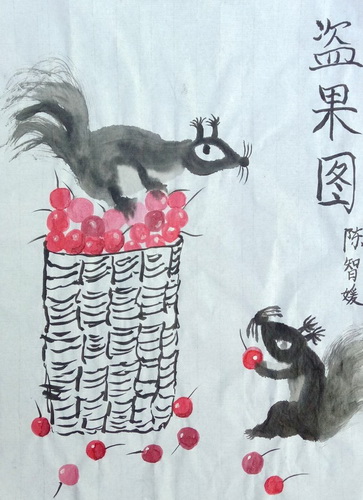 盗果图
陈智媛